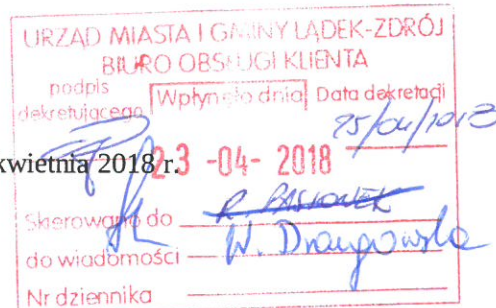 URZĄD MIASTA I GMINY LĄDEK-ZDRÓJ
BIURO OBSŁUGI KLIENTA
podpis dekretującego
Wpłynęło dnia
Data dekretacji
25/04/2018
kwietnia 2018 r.
23 -04- 2018
Skierowano do
do wiadomości W. Drangowska
Nr dziennika